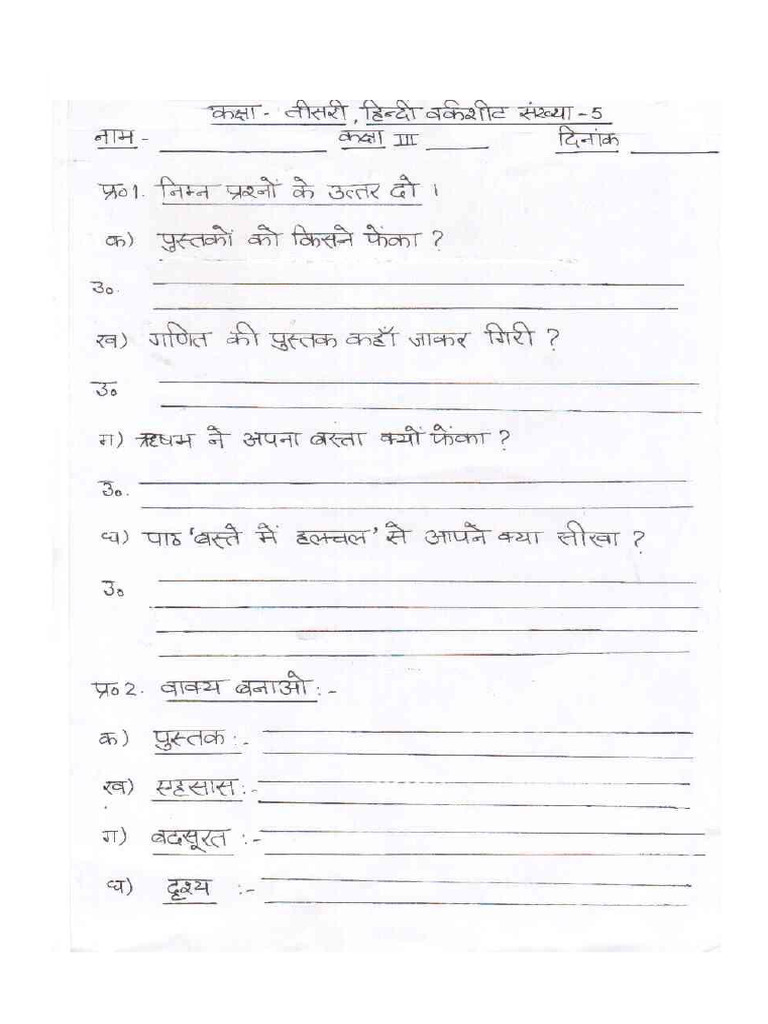 कक्षा - तीसरी, हिन्दी वर्कशीट संख्या - 5
नाम - __________ कक्षा III _____ दिनांक _______
प्र०1. निम्न प्रश्नों के उत्तर दो ।
क) पुस्तकों को किसने फेंका ?
उ०.
ख) गणित की पुस्तक कहाँ जाकर गिरी ?
उ०
ग) ऋषभ ने अपना बस्ता क्यों फेंका ?
उ०.
घ) पाठ 'बस्ते में हलचल' से आपने क्या सीखा ?
उ०
प्र०2. वाक्य बनाओ :-
क) पुस्तक :-
ख) एहसास :-
ग) बदसूरत :-
घ) दृश्य :-